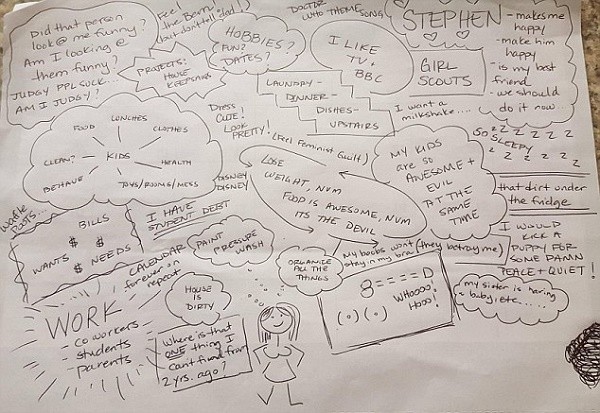 Did that person
look @ me funny?
Am I looking @
them funny?
JUDGY PPL SUCK...
AM I JUDGY?
Feel
like Berry
(but don't tell dad!)
PROJECTS:
HOUSE
KEEPSAKES
HOBBIES?
FUN?
DATES?
DOCTOR
WHO THEME SONG
I LIKE
TV +
BBC
STEPHEN
- makes me
happy
- make him
happy
- is my best
friend
- we should
do it now...
GIRL
SCOUTS
I want a
milkshake....
LAUNDRY-
DINNER-
DISHES-
UPSTAIRS
DRESS
CUTE!
LOOK
PRETTY!
(Feel Feminist Guilt)
FOOD
LUNCHES
CLOTHES
CLEAN?
KIDS
HEALTH
BEHAVE
TOYS/ROOMS/MESS
DISNEY
DISNEY
LOSE
WEIGHT, NUM
FOOD IS AWESOME, NUM
ITS THE DEVIL
MY KIDS
ARE SO
AWESOME +
EVIL
AT THE
SAME
TIME
SO
SLEEPY
z z z z z
z z z z z
that dirt under
the fridge
I WOULD
KICK A
PUPPY FOR
SOME DAMN
PEACE + QUIET!
BILLS
$ $
$
WANTS
NEEDS
I HAVE
STUDENT DEBT
CALENDAR
forever on
repeat
PAINT
PRESSURE
WASH
ORGANIZE
ALL THE
THINGS
My boobs won't (they betray me)
stay in my bra!
8====D
WHOOOO!
HOOO!
(.)(.)
my sister is having
a baby ete.....
WORK
- coworkers
- students
- parents
HOUSE
IS
DIRTY
Where is that
ONE thing I
can't find from
2 yrs. ago?